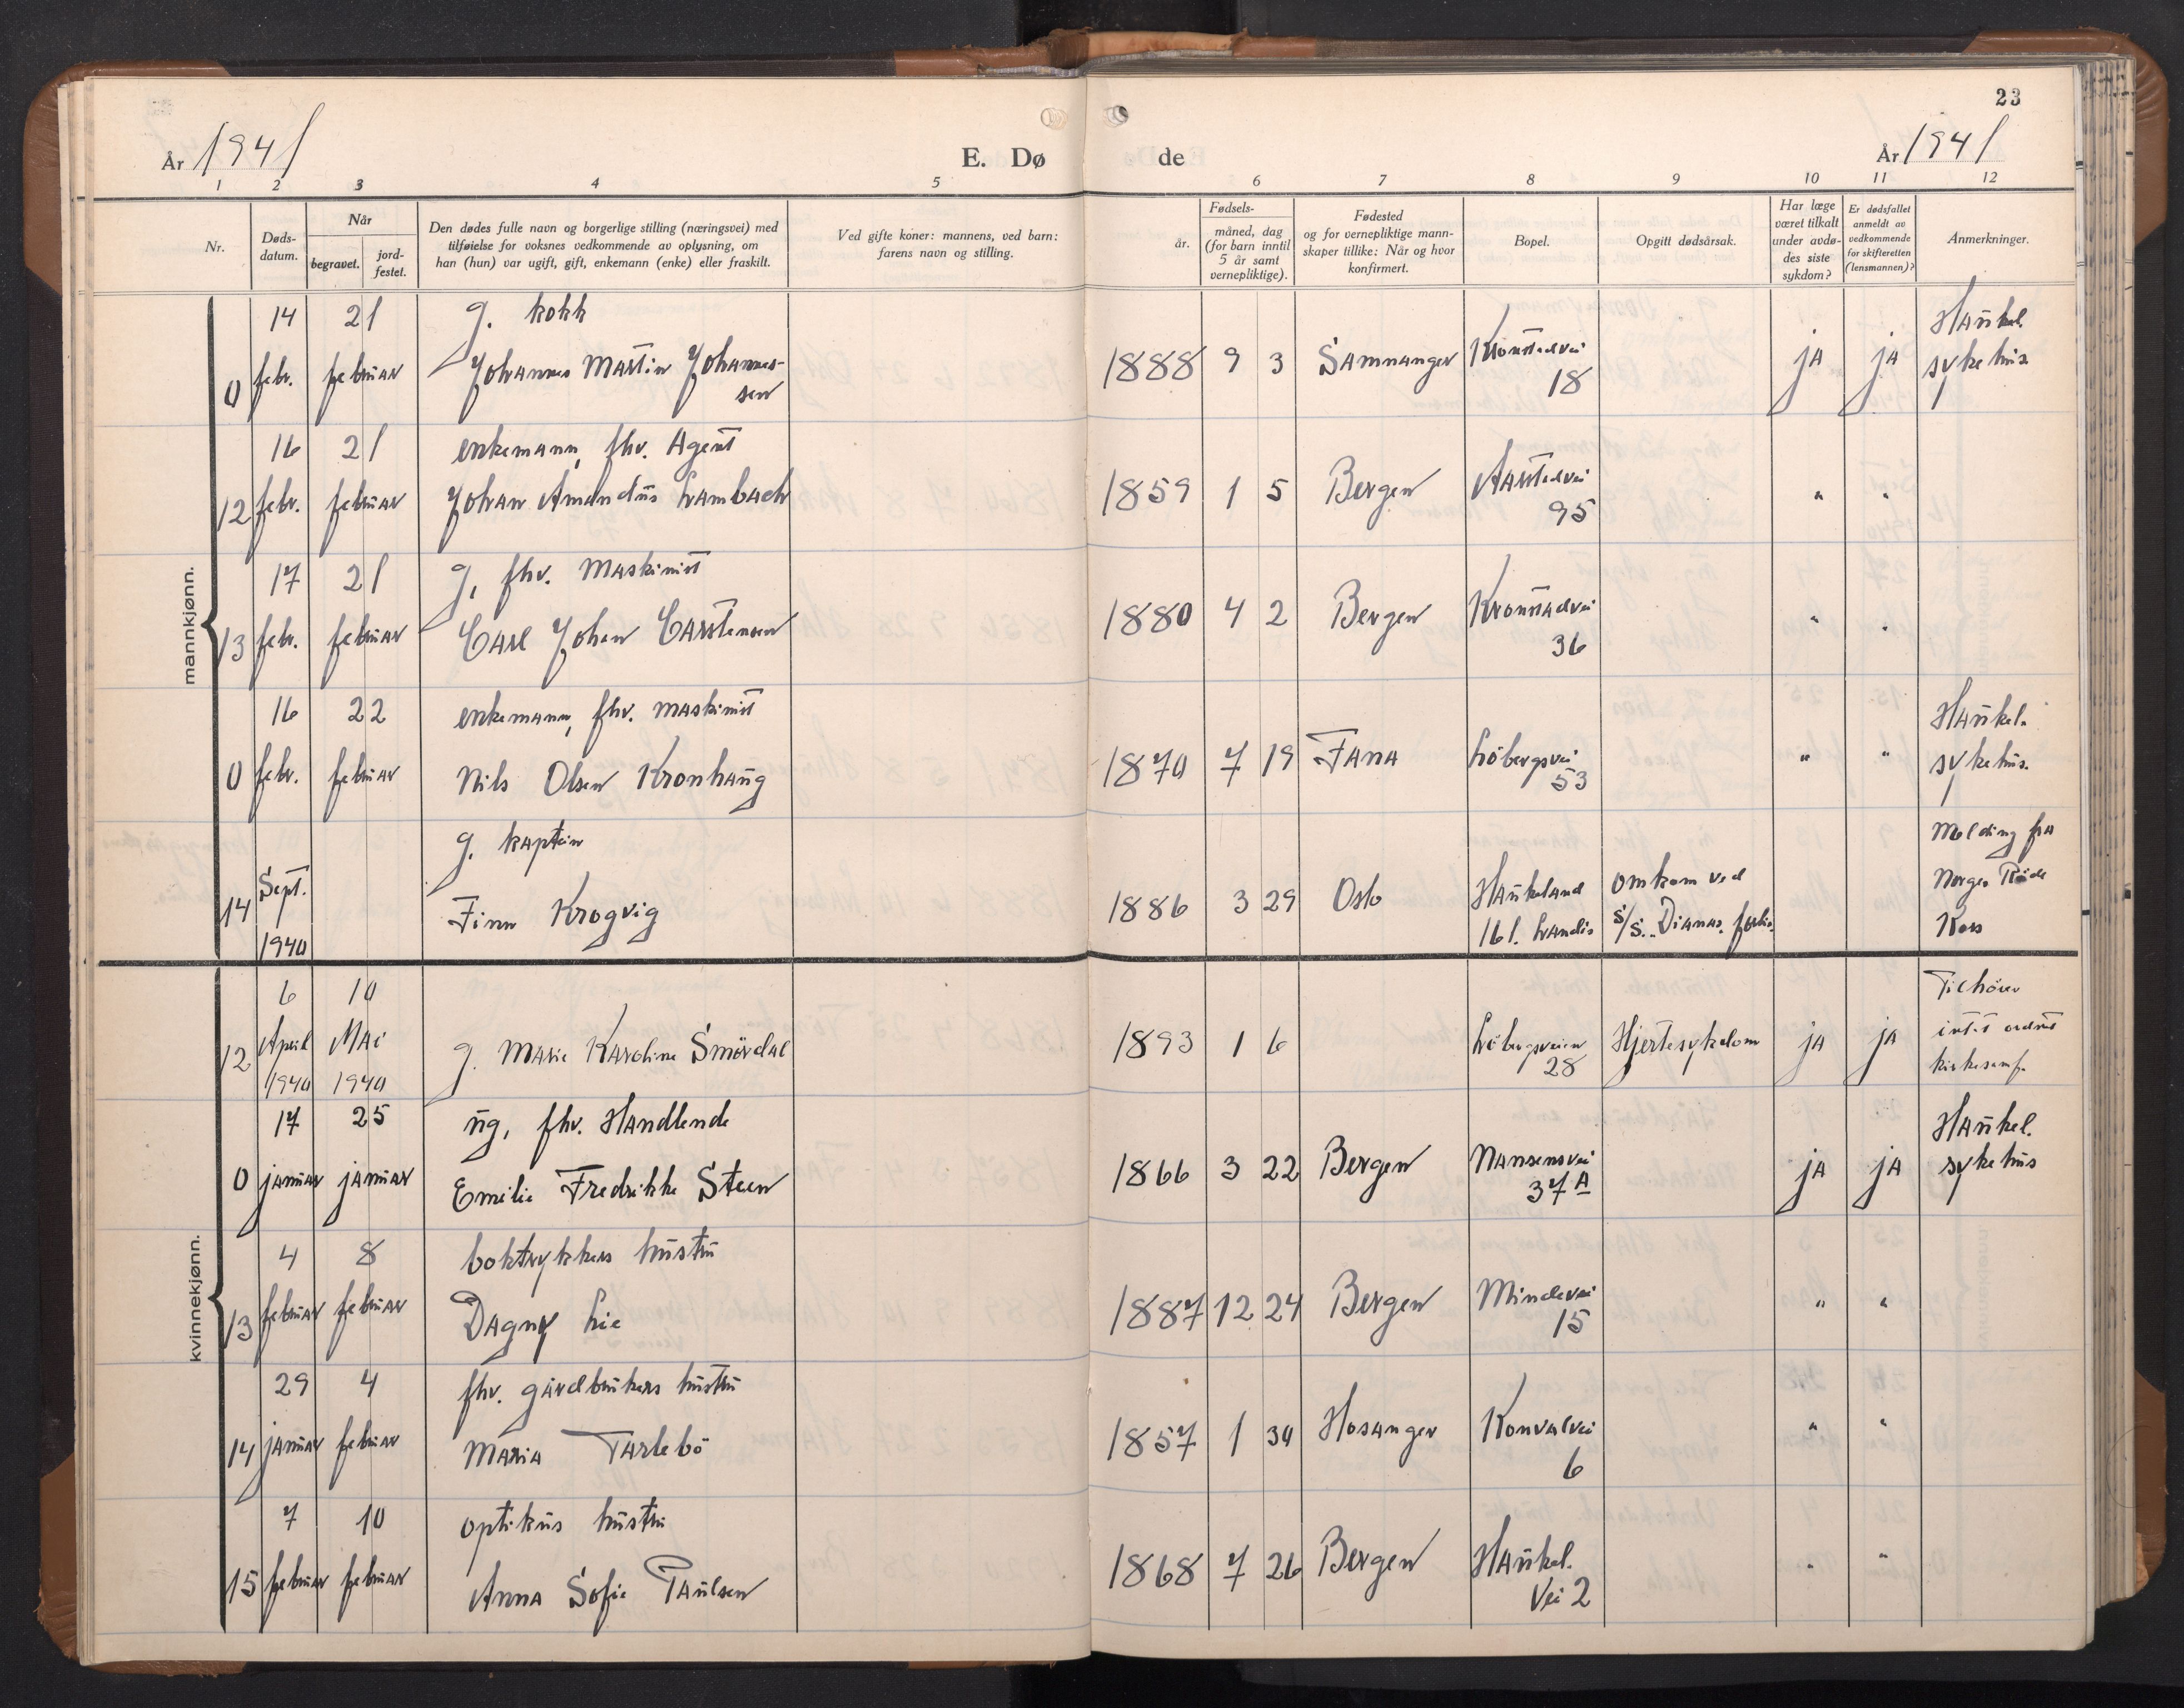 23
År 1941
E. Dø
de
År 1941
1 2 3 4 5 6 7 8 9 10 11 12
Nr.
Døds-
datum.
Når
begravet.
jord-
festet.
Den dødes fulle navn og borgerlige stilling (næringsvei) med
tilføielse for voksnes vedkommende av oplysning, om
han (hun) var ugift, gift, enkemann (enke) eller fraskilt.
Ved gifte koner: mannens, ved barn:
farens navn og stilling.
Fødsels-
år.
måned, dag
(for barn inntil
5 år samt
vernepliktige).
Fødested
og for vernepliktige mann-
skaper tillike: Når og hvor
konfirmert.
Bopel.
Opgitt dødsårsak.
Har læge
været tilkalt
under avdø-
des siste
sykdom?
Er dødsfallet
anmeldt av
vedkommende
for skifteretten
(lensmannen)?
Anmerkninger.
mannkjønn.
14 21 g. kokk Haukel.
0 febr. februar Johannes Martin Johannes- 1888 9 3 Samnanger Kronstadvei ja ja sykehus
sen 18
16 21 enkemann, fhv. Agent
12 febr. februar Johan Amandus Lambach 1859 1 5 Bergen Aarstadvei " "
95
17 21 g, fhv. Maskinist
13 febr. februar Carl Johan Carstensen 1880 4 2 Bergen Kronstadvei " "
36
16 22 enkemann, fhv. maskinist Haukel.
0 febr. februar Nils Olsen Kronhaug 1870 7 19 Fana Løbergsvei " " sykehus.
53
g. kaptein Melding fra
14 Sept. Finn Krogvig 1886 3 29 Oslo Haukeland omkom ved Norges Røde
1940 161. Landås s/s. "Dianas" forlis. Kors
kvinnekjønn.
6 10 Tilhører
12 April Mai g. Marie Karoline Smørdal 1893 1 6 Løbergsveien Hjertesykdom ja ja intet ordnet
1940 1940 28 kirkesamf.
17 25 ug, fhv. Handlende Haukel.
0 januar januar Emilie Fredrikke Steen 1866 3 22 Bergen Nansensvei ja ja sykehus
37A
4 8 boktrykkers hustru
13 februar februar Dagny Lie 1887 12 24 Bergen Mindevei " "
15
29 4 fhv. gårdbrukers hustru
14 januar februar Maria Tarlebø 1857 1 30 Hosanger Konvalvei " "
6
7 10 optikus hustru
15 februar februar Anna Sofie Paulsen 1868 7 26 Bergen Haukel. " "
Vei 2